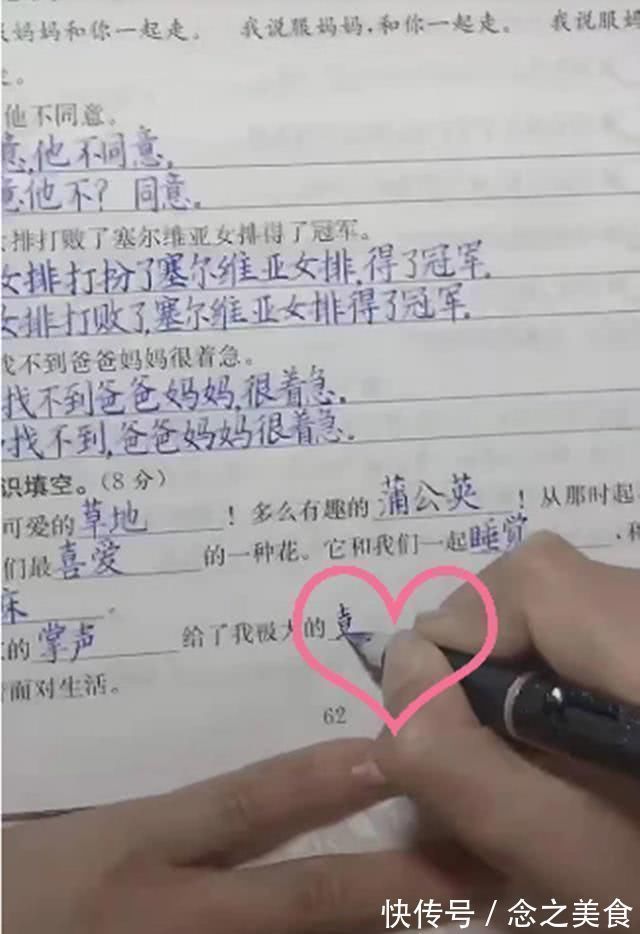 妈妈和你一起走。 我说服妈妈,和你一起走。 我说服妈
他不同意。
意,他不同意。
意他不?同意。
女排打败了塞尔维亚女排得了冠军。
女排打扮了塞尔维亚女排,得了冠军.
女排打败了,塞尔维亚女排得了冠军.
找不到爸爸妈妈很着急。
找不到爸爸妈妈,很着急。
找不到,爸爸妈妈很着急。
识填空。(8分)
可爱的草地!多么有趣的蒲公英!从那时起
们最喜爱的一种花。它和我们一起睡觉,
床。
的掌声给了我极大的
面对生活。
62
快传号 / 念之美食